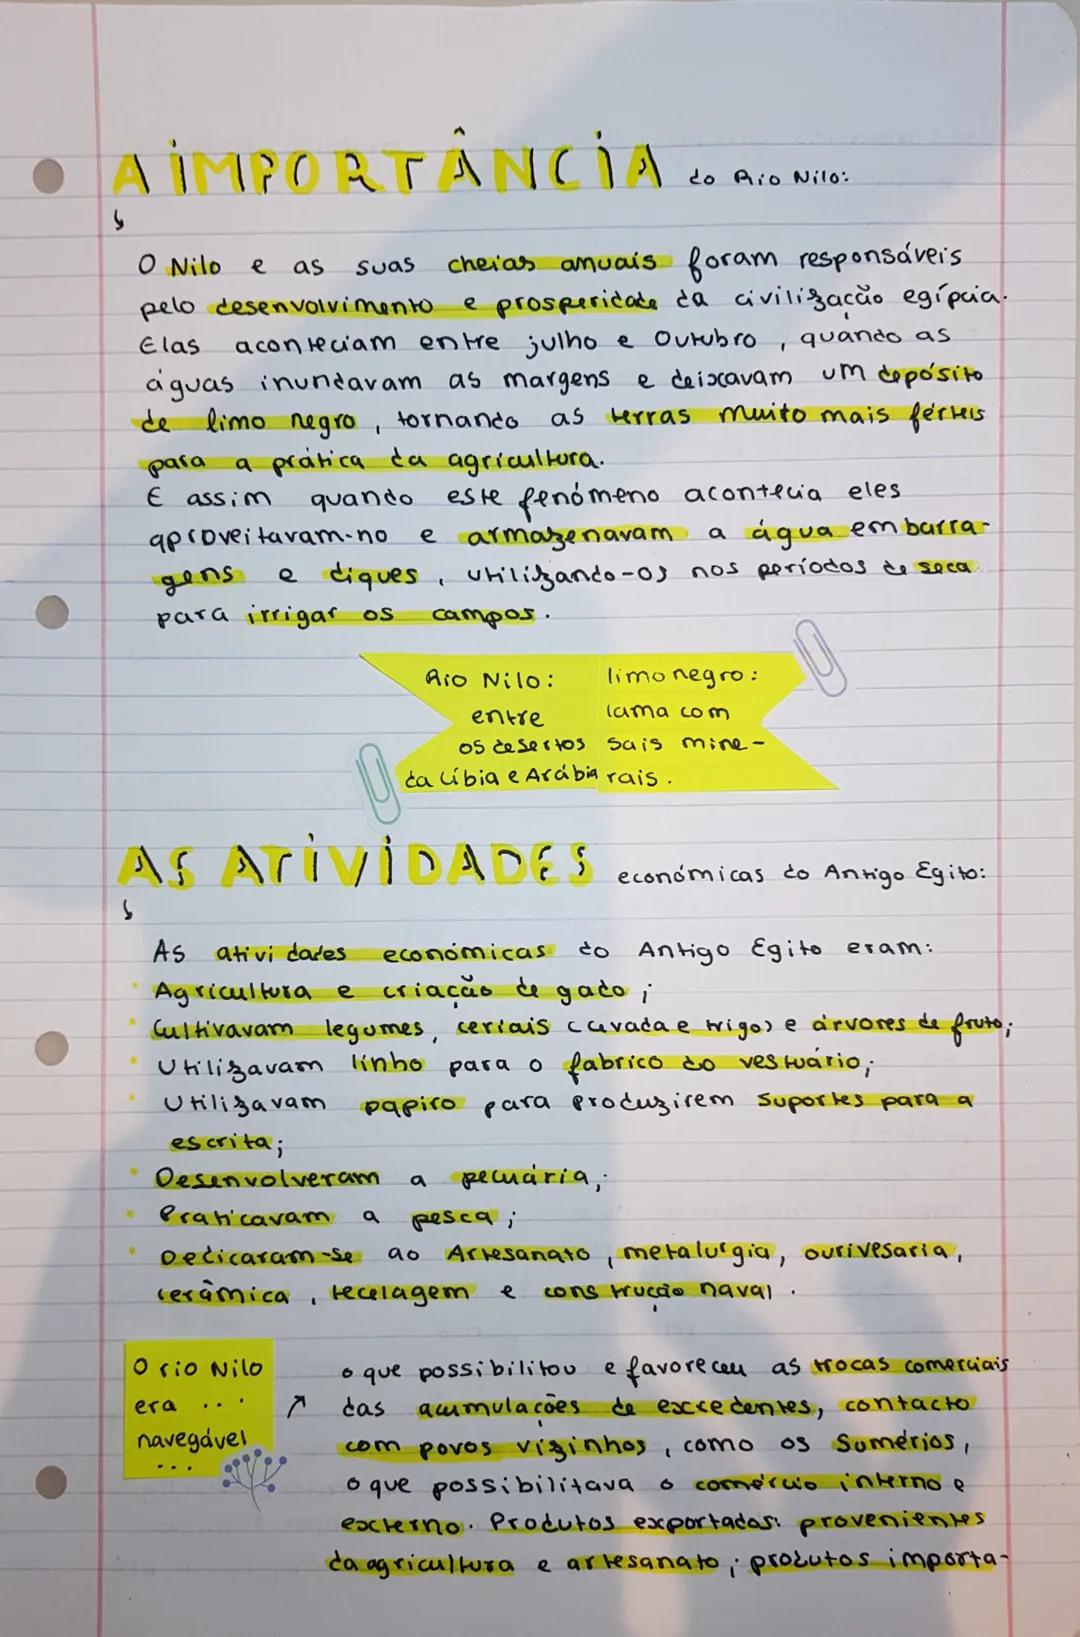 A IMPORTÂNCIA do Rio Nilo:
O Nilo e as suas cheias anuais foram responsáveis
pelo desenvolvimento e prosperidade da civilização egípcia.
Elas aconteciam entre julho e Outubro, quando as
águas inundavam as margens e deixavam um depósito
de limo negro, tornando as terras muito mais férteis
para a prática da agricultura.
E assim quando este fenómeno acontecia eles
aproveitavam-no e armazenavam a água em barra-
gens e diques, utilizando-os nos períodos de seca
para irrigar os campos.
Rio Nilo:
entre
os desertos
da Líbia e Arábia
limo negro:
lama com
sais mine-
rais.
AS ATIVIDADES económicas do Antigo Egito:
As atividades económicas do Antigo Egito eram:
Agricultura e criação de gado;
Cultivavam legumes, ceriais (cevada e trigo) e árvores de fruto;
Utilizavam linho para o fabrico do vestuário;
Utilizavam papiro para produzirem suportes para a
escrita;
Desenvolveram a pecuária;
Praticavam a pesca;
Dedicaram-se ao Artesanato, metalurgia, ourivesaria,
cerâmica, tecelagem e construção naval.
O rio Nilo
era ...
navegável
...
o que possibilitou e favoreceu as trocas comerciais
das acumulações de excedentes, contacto
com povos vizinhos, como os Sumérios,
o que possibilitava o comércio interno e
externo. Produtos exportados: provenientes
da agricultura e artesanato; produtos importa-